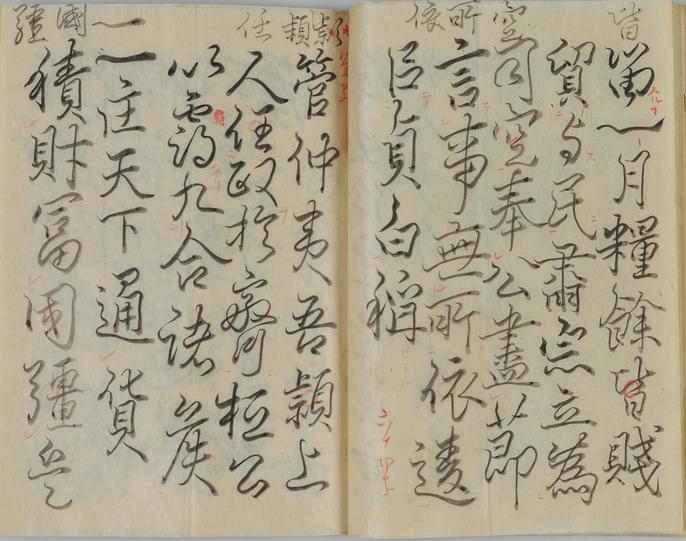 皆
留一月糧餘皆賤
貿与民肅宗立為
空
司空奉公盡節
所
依
言事無所依違
㠯貞白稱
頴
管仲夷吾頴上
任
人任政於齊桓公
以霸九合諸侯
一
一匡天下通貨
國
彊
積財冨国彊兵